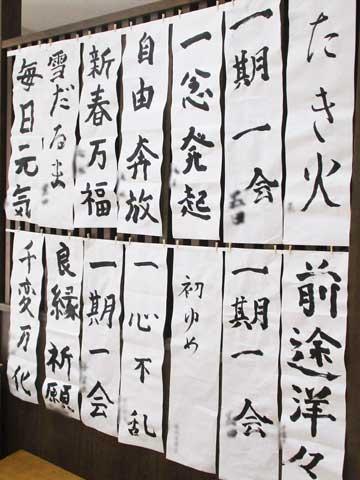 たき火
一期一会
一念発起
自由奔放
新春万福
雪だるま
毎日元気
前途洋々
一期一会
初ゆめ
一心不乱
一期一会
良縁祈願
千変万化